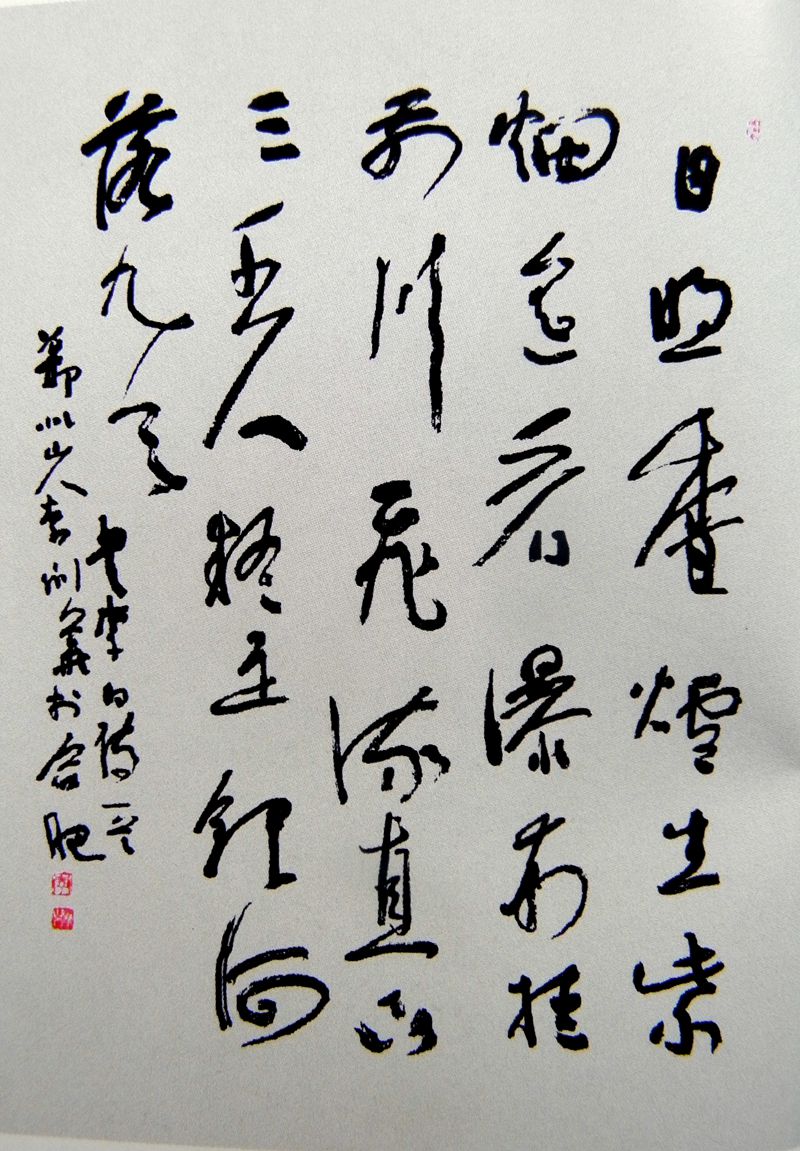 日照香爐生紫
烟遥看瀑布挂
前川飛流直下
三千尺疑是銀河
落九天
李白詩一首
鄭州山人李義於合肥